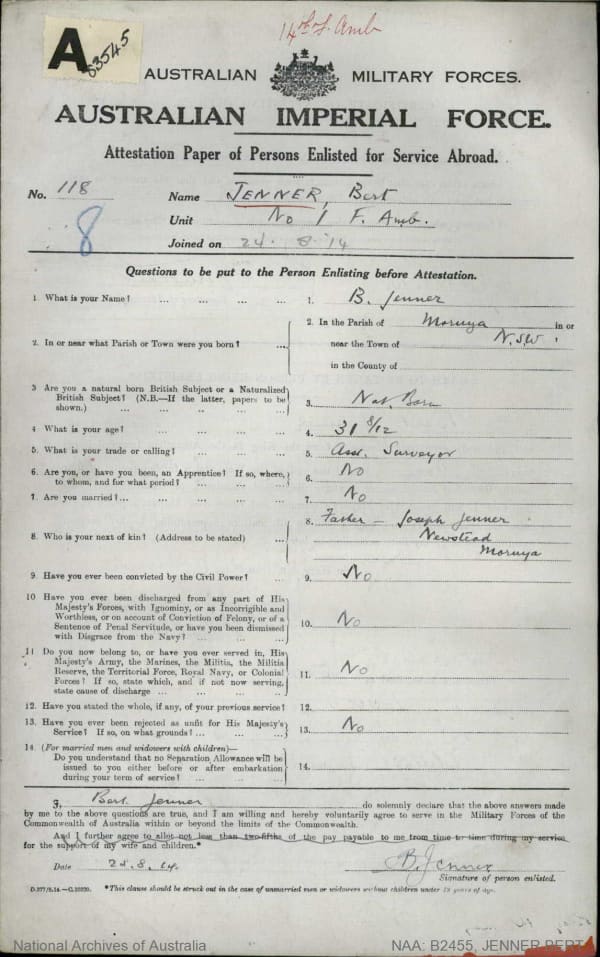 14th F. Amb
A 63545
AUSTRALIAN MILITARY FORCES.
AUSTRALIAN IMPERIAL FORCE.
Attestation Paper of Persons Enlisted for Service Abroad.
No. 118 Name JENNER, Bert
8 Unit No 1 F. Amb.
Joined on 24. 8. 14
Questions to be put to the Person Enlisting before Attestation.
1. What is your Name? ... ... ... ... 1. B. Jenner
2. In or near what Parish or Town were you born? ... 2. In the Parish of Moruya in or
near the Town of N.S.W.
in the County of
3 Are you a natural born British Subject or a Naturalized
British Subject? (N.B.—If the latter, papers to be
shown.) ... ... ... ... ... 3. Nat. Born
4 What is your age? ... ... ... ... 4. 31 8/12
5. What is your trade or calling? ... ... ... 5. Asst. Surveyor
6. Are you, or have you been, an Apprentice? If so, where,
to whom, and for what period? ... ... ... 6. No
7. Are you married?... ... ... ... ... 7. No
8. Who is your next of kin? (Address to be stated) ... 8. Father — Joseph Jenner
Newstead
Moruya
9. Have you ever been convicted by the Civil Power? ... 9. No
10. Have you ever been discharged from any part of His
Majesty's Forces, with Ignominy, or as Incorrigible and
Worthless, or on account of Conviction of Felony, or of a
Sentence of Penal Servitude, or have you been dismissed
with Disgrace from the Navy? ... ... ... 10. No
11 Do you now belong to, or have you ever served in, His
Majesty's Army, the Marines, the Militia, the Militia
Reserve, the Territorial Force, Royal Navy, or Colonial
Forces? If so, state which, and if not now serving,
state cause of discharge ... ... ... ... 11. No
12. Have you stated the whole, if any, of your previous service? 12.
13. Have you ever been rejected as unfit for His Majesty's
Service? If so, on what grounds? ... ... ... 13. No
14. (For married men and widowers with children)—
Do you understand that no Separation Allowance will be
issued to you either before or after embarkation
during your term of service? ... ... ... 14.
I, Bert Jenner do solemnly declare that the above answers made
by me to the above questions are true, and I am willing and hereby voluntarily agree to serve in the Military Forces of the
Commonwealth of Australia within or beyond the limits of the Commonwealth.
And I further agree to allot not less than two-fifths of the pay payable to me from time to time during my service
for the support of my wife and children.*
Date 28.8.14. B. Jenner
Signature of person enlisted.
D.377/8.14.—C.10920. *This clause should be struck out in the case of unmarried men or widowers without children under 18 years of age.
National Archives of Australia NAA: B2455, JENNER BERT